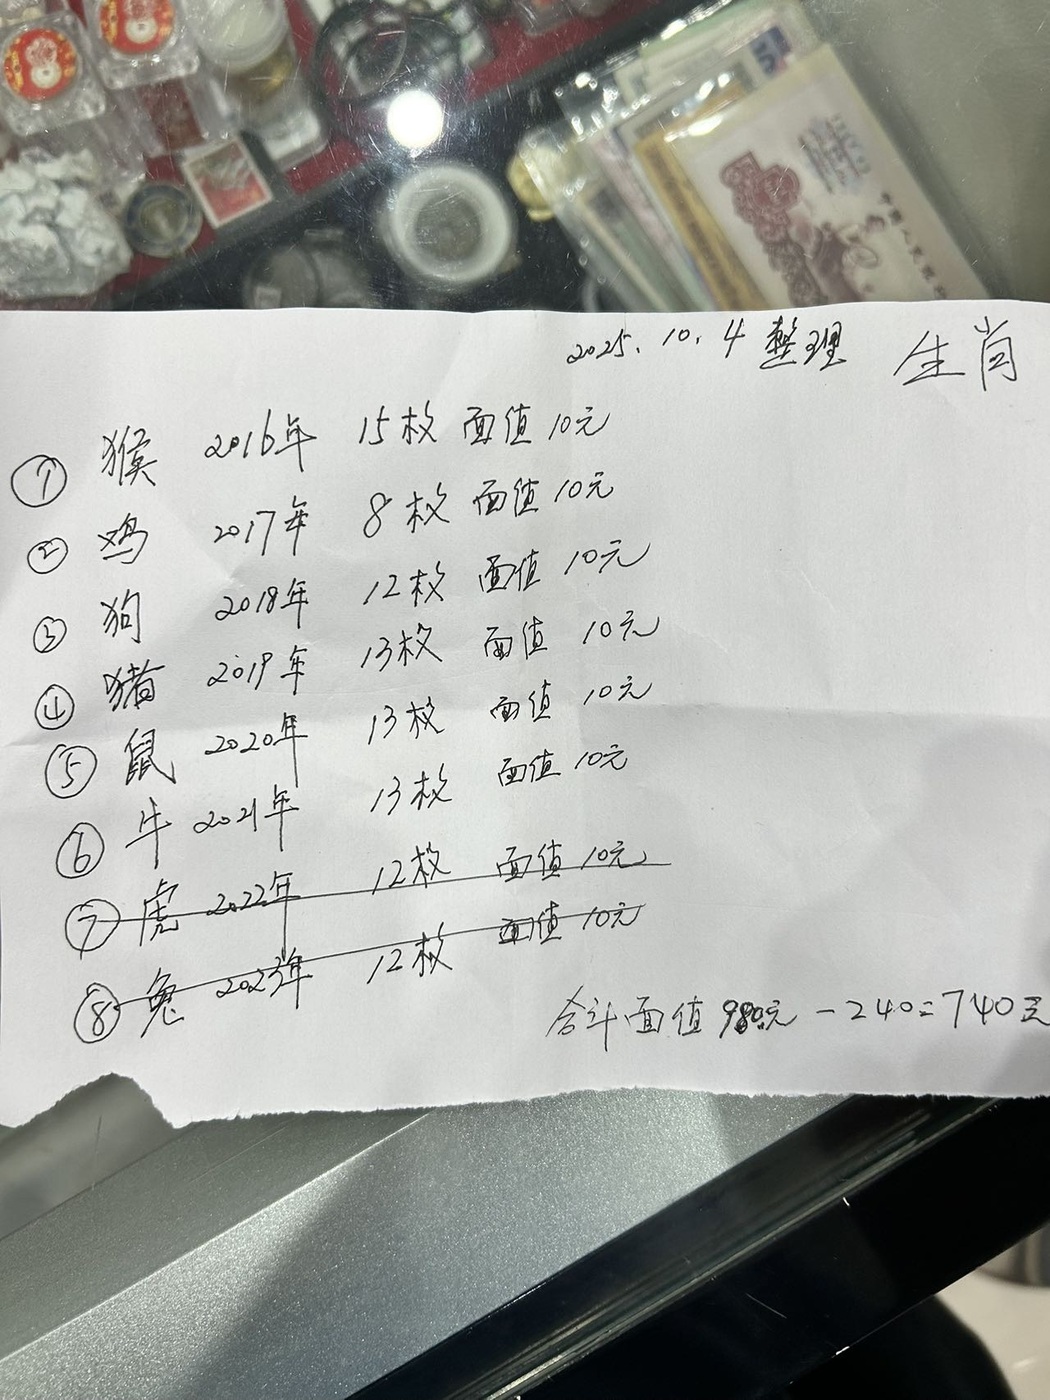 中国人民银
2025.10.4 整理 生肖
① 猴 2016年 15枚 面值 10元
② 鸡 2017年 8枚 面值 10元
③ 狗 2018年 12枚 面值 10元
④ 猪 2019年 13枚 面值 10元
⑤ 鼠 2020年 13枚 面值 10元
⑥ 牛 2021年 13枚 面值 10元
⑦ 虎 2022年 12枚 面值 10元
⑧ 兔 2023年 12枚 面值 10元
合计面值 980元 -240=740元